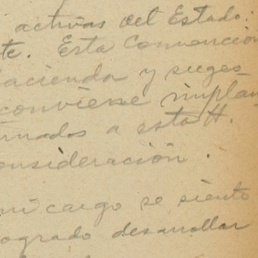 activas del Estado.
te. Esta Convención
acienda y suges
conviene implan
mados a esta H.
onsideración.
mi cargo se siente
ogrado desarrollar